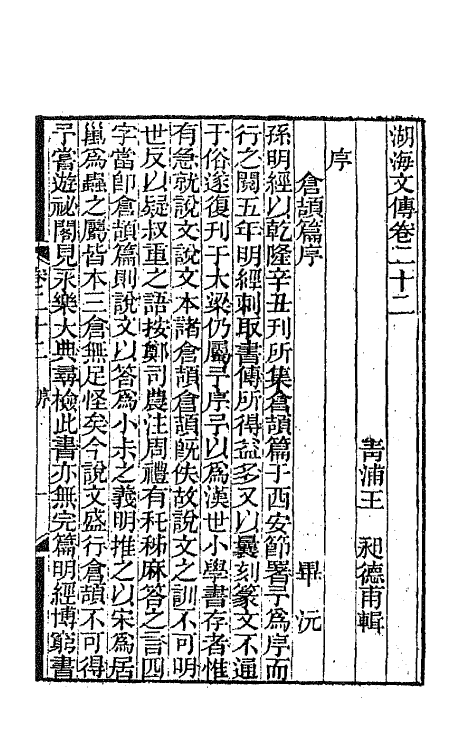 湖海文傳卷二十二
青浦王 昶德甫輯
序
倉頡篇序 畢沅
孫明經以乾隆辛丑刊所集倉頡篇于西安節署予爲序而
行之閱五年明經刺取書傳所得益多又以曩刻篆文不通
于俗遂復刊于大梁仍屬予序予以爲漢世小學書存者惟
有急就說文說文本諸倉頡倉頡既佚故說文之訓不可明
世反以疑叔重之語按鄭司農注周禮有秅秭麻答之言四
字當卽倉頡篇則說文以答爲小尗之義明推之以宋爲居
巢爲蟲之屬皆木三倉無足怪矣今說文盛行倉頡不可得
予嘗遊祕閣見永樂大典尋檢此書亦無完篇明經博窮書
卷二十二 序 一